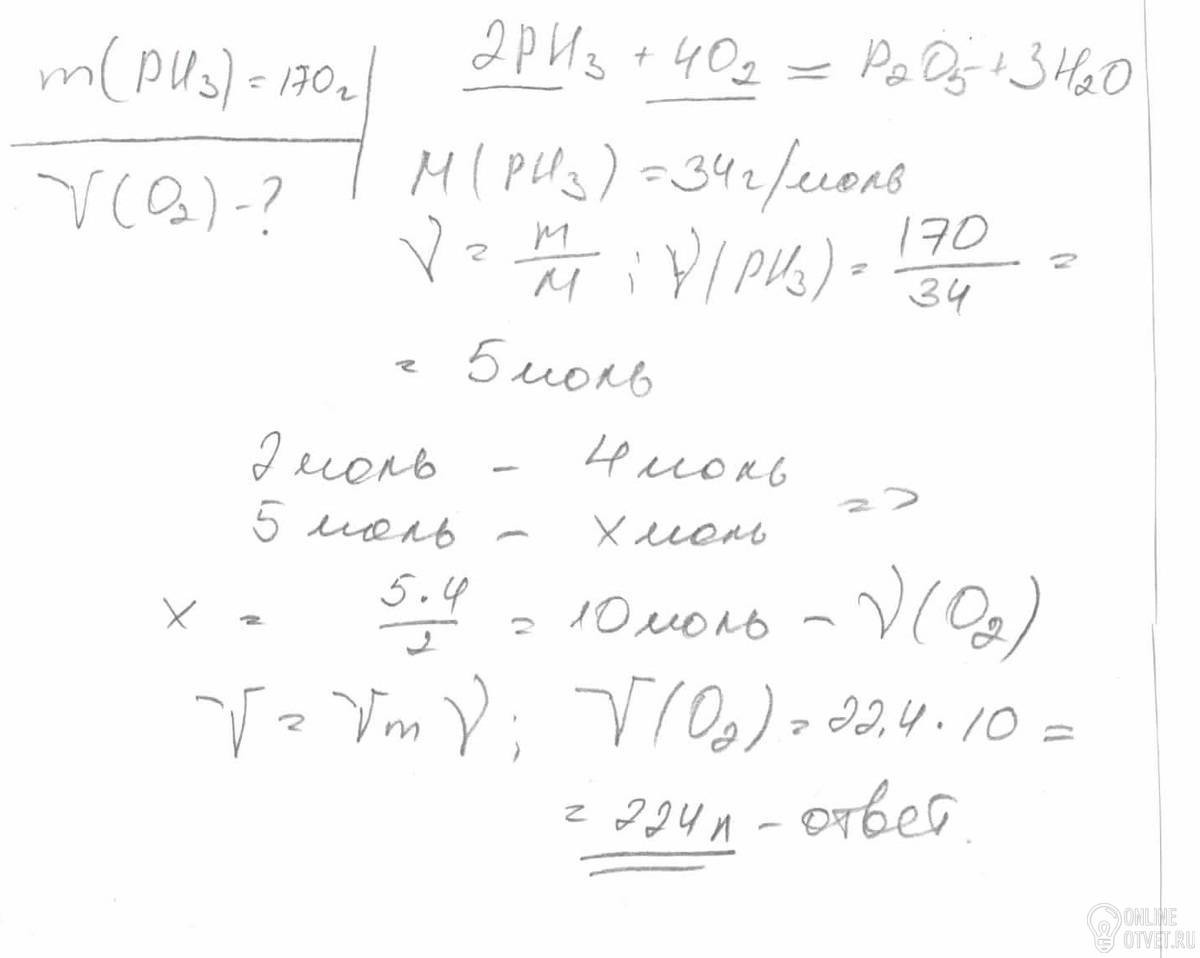 m(PH₃) = 170г
V(O₂) - ?
2PH₃ + 4O₂ = P₂O₅ + 3H₂O
M(PH₃) = 34г/моль
ν = m/M ; ν(PH₃) = 170/34 =
= 5 моль
2 моль - 4 моль
5 моль - x моль =>
x = 5·4/2 = 10 моль - ν(O₂)
V = Vm ν ; V(O₂) = 22,4 · 10 =
= 224 л - ответ.
ONLINE
OTVET.RU